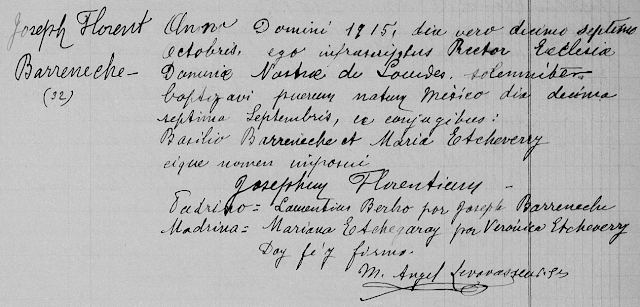 Joseph Florent
Barreneche-
(32)
Anno Domini 1915, dia vero decimo septimo
Octobris, ego infrascriptus Rector Ecclesiæ
Dominæ Nostræ de Lourdes. solemniter
baptizavi puerum natum Mexico dia decima
septima Septembris, ex conjugibus:
Basilio Barreneche et Maria Etcheverry
eique nomen imposui
Josephum Florentium -
Padrino = Laurentius Berho por Joseph Barreneche
Madrina = Mariana Etchegaray por Veronica Etcheverry
Doy fé y firmo.
M. Angel